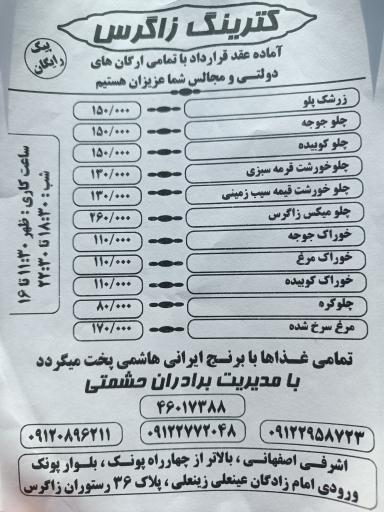 کترینگ زاگرس
پیک رایگان
آماده عقد قرارداد با تمامی ارگان های
دولتی و مجالس شما عزیزان هستیم
زرشک پلو ۱۵۰/۰۰۰
چلو جوجه ۱۵۰/۰۰۰
چلو کوبیده ۱۵۰/۰۰۰
چلوخورشت قرمه سبزی ۱۳۰/۰۰۰
چلو خورشت قیمه سیب زمینی ۱۳۰/۰۰۰
چلو میکس زاگرس ۲۶۰/۰۰۰
خوراک جوجه ۱۱۰/۰۰۰
خوراک مرغ ۱۱۰/۰۰۰
خوراک کوبیده ۱۱۰/۰۰۰
چلوکره ۸۰/۰۰۰
مرغ سرخ شده ۱۷۰/۰۰۰
ساعت کاری : ظهر ۱۱:۳۰ تا ۱۶
شب: ۱۸:۳۰ تا ۲۲:۳۰
تمامی غذاها با برنج ایرانی هاشمی پخت میگردد
با مدیریت برادران حشمتی
۴۶۰۱۷۳۸۸
۰۹۱۲۲۹۵۸۷۲۳ ۰۹۱۲۲۷۷۲۰۴۸ ۰۹۱۲۰۸۹۶۲۱۱
اشرفی اصفهانی ، بالاتر از چهارراه پونک ، بلوار پونک
ورودی امام زادگان عینعلی زینعلی ، پلاک ۳۶ رستوران زاگرس